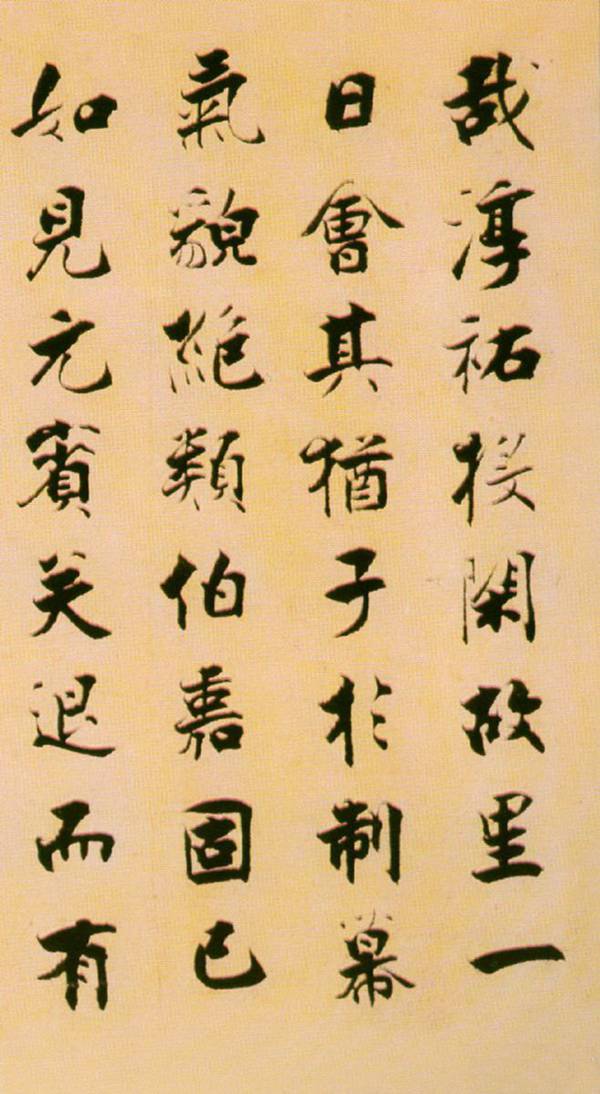 哉淳祐投閑故里一
日會其猶子於制幕
氣貌絕類伯嘉固已
如見元賓矣退而有